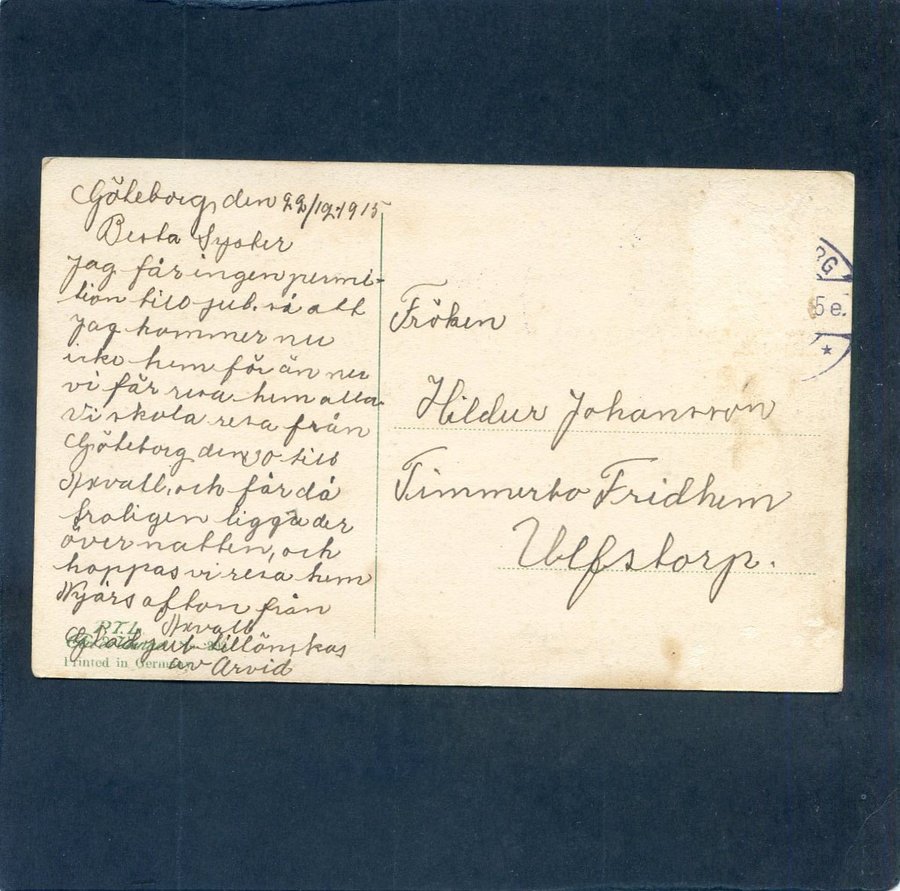 Göteborg den 22/12 1915
Besta Syster
Jag får ingen permi-
tion till jul. så att
Jag kommer nu
icke hem för än nu
vi får resa hem alla.
Vi skola resa från
Göteborg den 30 till
Axvall, och får då
troligen ligga der
över natten, och
hoppas vi resa hem
Nyårs afton från
Axvall
Glad jul tillönskas
av Arvid
P.T.L.
Printed in Germany
Fröken
Hildur Johansson
Timmerbo Fridhem
Ulfstorp.
RG
5 e.
*